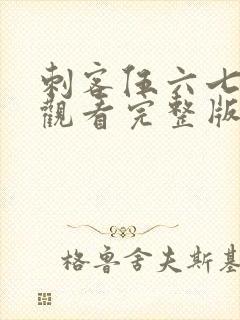 刺客伍六七
觀看完整版
格魯舍夫斯基